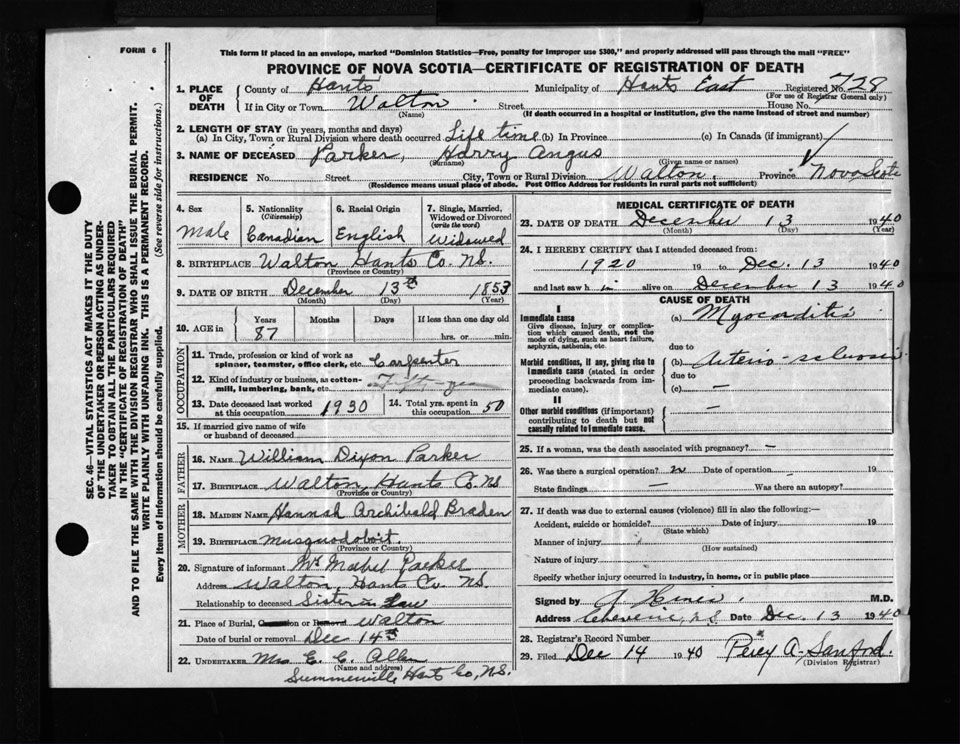 FORM 6
This form if placed in an envelope, marked "Dominion Statistics—Free, penalty for improper use $300," and properly addressed will pass through the mail "FREE"
PROVINCE OF NOVA SCOTIA—CERTIFICATE OF REGISTRATION OF DEATH
SEC. 46—VITAL STATISTICS ACT MAKES IT THE DUTY
OF THE UNDERTAKER OR PERSON ACTING AS UNDER-
TAKER TO OBTAIN ALL THE PARTICULARS REQUIRED
IN THE "CERTIFICATE OF REGISTRATION OF DEATH"
AND TO FILE THE SAME WITH THE DIVISION REGISTRAR WHO SHALL ISSUE THE BURIAL PERMIT.
WRITE PLAINLY WITH UNFADING INK. THIS IS A PERMANENT RECORD.
Every item of information should be carefully supplied. (See reverse side for instructions.)
1. PLACE OF DEATH County of Hants Municipality of Hants East Registered No. 728
(For use of Registrar General only)
If in City or Town Walton Street House No.
(Name) (If death occurred in a hospital or institution, give the name instead of street and number)
2. LENGTH OF STAY (in years, months and days)
(a) In City, Town or Rural Division where death occurred Life time (b) In Province (c) In Canada (if immigrant)
3. NAME OF DECEASED Parker, Harry Angus
(Surname) (Given name or names)
RESIDENCE No. Street City, Town or Rural Division Walton, Province Nova Scotia
(Residence means usual place of abode. Post Office Address for residents in rural parts not sufficient)
4. Sex Male
5. Nationality (Citizenship) Canadian
6. Racial Origin English
7. Single, Married, Widowed or Divorced (write the word) Widowed
8. BIRTHPLACE Walton Hants Co. N.S.
(Province or Country)
9. DATE OF BIRTH December 13th 1853
(Month) (Day) (Year)
10. AGE in Years 87 Months Days If less than one day old hrs. or min.
OCCUPATION
11. Trade, profession or kind of work as spinner, teamster, office clerk, etc. Carpenter
12. Kind of industry or business, as cotton-mill, lumbering, bank, etc.
13. Date deceased last worked at this occupation 1930
14. Total yrs. spent in this occupation 50
15. If married give name of wife or husband of deceased
FATHER
16. NAME William Dixon Parker
17. BIRTHPLACE Walton, Hants Co. N.S
(Province or Country)
MOTHER
18. MAIDEN NAME Hannah Archibald Braden
19. BIRTHPLACE Musquodoboit.
(Province or Country)
20. Signature of informant Mrs Mabel Parker
Address Walton, Hants Co. N.S.
Relationship to deceased Sister in Law
21. Place of Burial, Cremation or Removal Walton
Date of burial or removal Dec 14th
22. UNDERTAKER Mrs E. C. Allen
(Name and address)
Summerville, Hants Co, N.S.
MEDICAL CERTIFICATE OF DEATH
23. DATE OF DEATH December 13 1940
(Month) (Day) (Year)
24. I HEREBY CERTIFY that I attended deceased from:
1920 19 to Dec. 13 1940
and last saw h im alive on December 13 1940
CAUSE OF DEATH
I
Immediate cause
Give disease, injury or complication which caused death, not the mode of dying, such as heart failure, asphyxia, asthenia, etc.
(a) Myocarditis
due to
Morbid conditions, if any, giving rise to immediate cause (stated in order proceeding backwards from immediate cause).
(b) Arterio-sclerosis
due to
(c) —
II
Other morbid conditions (if important) contributing to death but not causally related to immediate cause. —
25. If a woman, was the death associated with pregnancy? —
26. Was there a surgical operation? no Date of operation — 19
State findings — Was there an autopsy?
27. If death was due to external causes (violence) fill in also the following:—
Accident, suicide or homicide? Date of injury 19
(State which)
Manner of injury
(How sustained)
Nature of injury
Specify whether injury occurred in industry, in home, or in public place
Signed by M.D.
Address Cheverie, N.S. Date Dec. 13 1940
28. Registrar's Record Number
29. Filed Dec 14 1940 Percy A. Sanford.
(Division Registrar)